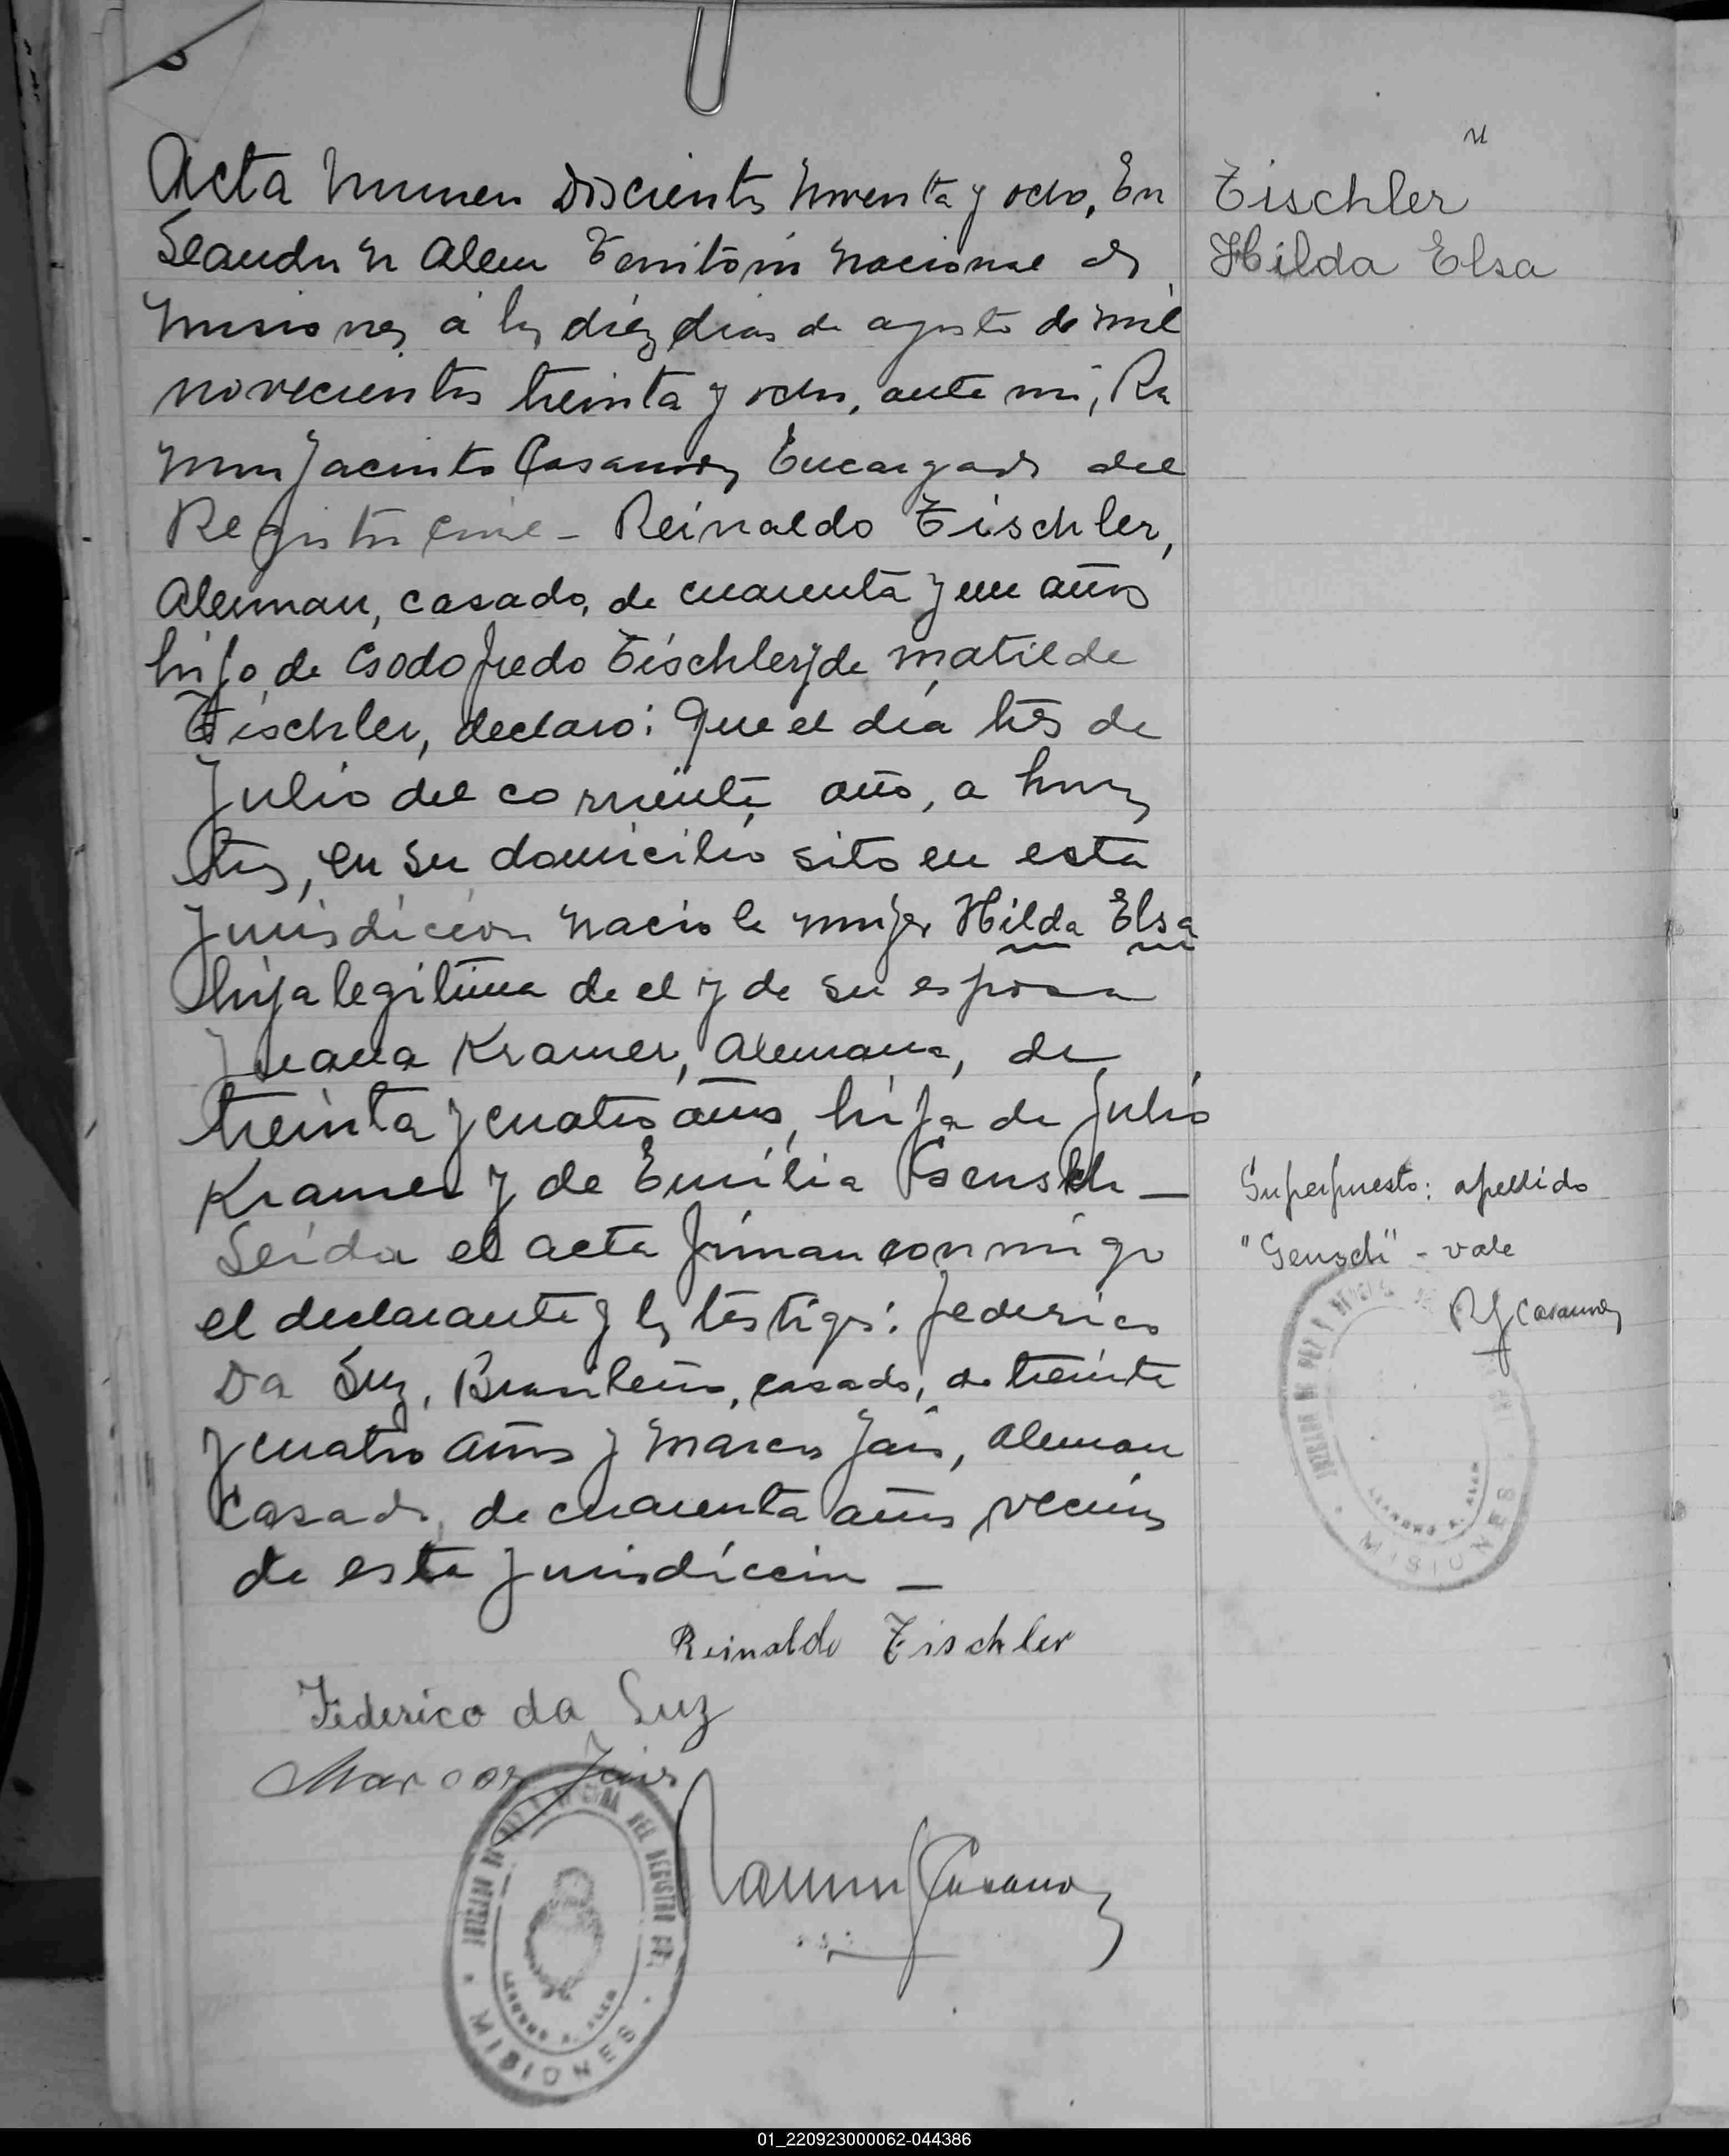 Acta Numero Doscientos Noventa y ocho, En
Leandro N Alem Territorio Nacional de
Misiones, á los diéz dias de agosto de mil
novecientos treinta y ocho, ante mi, Ra
mon Jacinto Casanova Encargado del
Registro Civil - Reinaldo Tischler,
Aleman, casado, de cuarenta y un años
hijo de Godofredo Tischler y de Matilde
Tischler, declaro: Que el día tres de
Julio del corriente año, a horas
tres, en su domicilio sito en esta
Jurisdiccion nacio la mujer Hilda Elsa
hija legitima de el y de su esposa
Juana Kramer, Alemana, de
treinta y cuatro años, hija de Julio
Kramer y de Emilia Gensch -
Leida el acta firman conmigo
el declarante y los testigos: Federico
Da Luz, Brasileño, casado, de treinta
y cuatro años y Marcos Jais, aleman
Casado, de cuarenta años, vecinos
de esta Jurisdiccion -
Reinaldo Tischler
Federico da Luz
Marcos Jais
Ramon J Casanova
JUZGADO DE PAZ Y OFICINA DEL REGISTRO CIVIL
LEANDRO N. ALEM
MISIONES
Tischler
Hilda Elsa
Superpuesto: apellido
"Gensch" - vale
RJCasanova
JUZGADO DE PAZ Y
LEANDRO N. ALEM
MISIONES
01_220923000062-044386